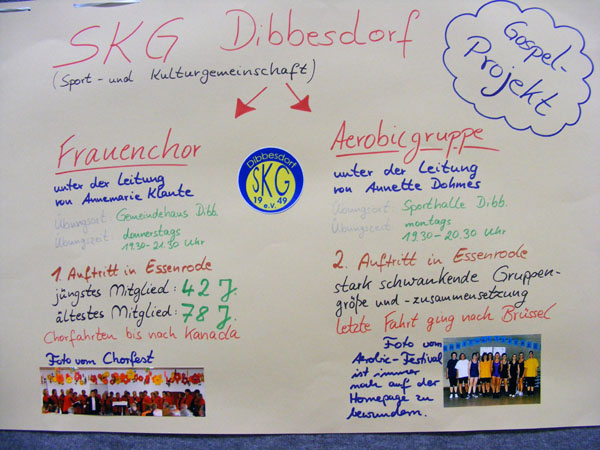 SKG Dibbesdorf
(Sport- und Kulturgemeinschaft)
Gospel-
Projekt
Frauenchor
unter der Leitung
von Annemarie Klante
Übungsort: Gemeindehaus Dibb.
Übungszeit: donnerstags
19.30-21.30 Uhr
1. Auftritt in Essenrode
jüngstes Mitglied: 42 J.
ältestes Mitglied: 78 J.
Chorfahrten bis nach Kanada
Foto vom Chorfest
Dibbesdorf
SKG
19 49
e.V.
Aerobicgruppe
unter der Leitung
von Annette Dohmes
Übungsort: Sporthalle Dibb.
Übungszeit: montags
19.30-20.30 Uhr
2. Auftritt in Essenrode
stark schwankende Gruppen-
größe und -zusammensetzung
letzte Fahrt ging nach Brüssel
Foto vom
Aerobic-Festival
ist immer
noch auf der
Homepage zu
bewundern.